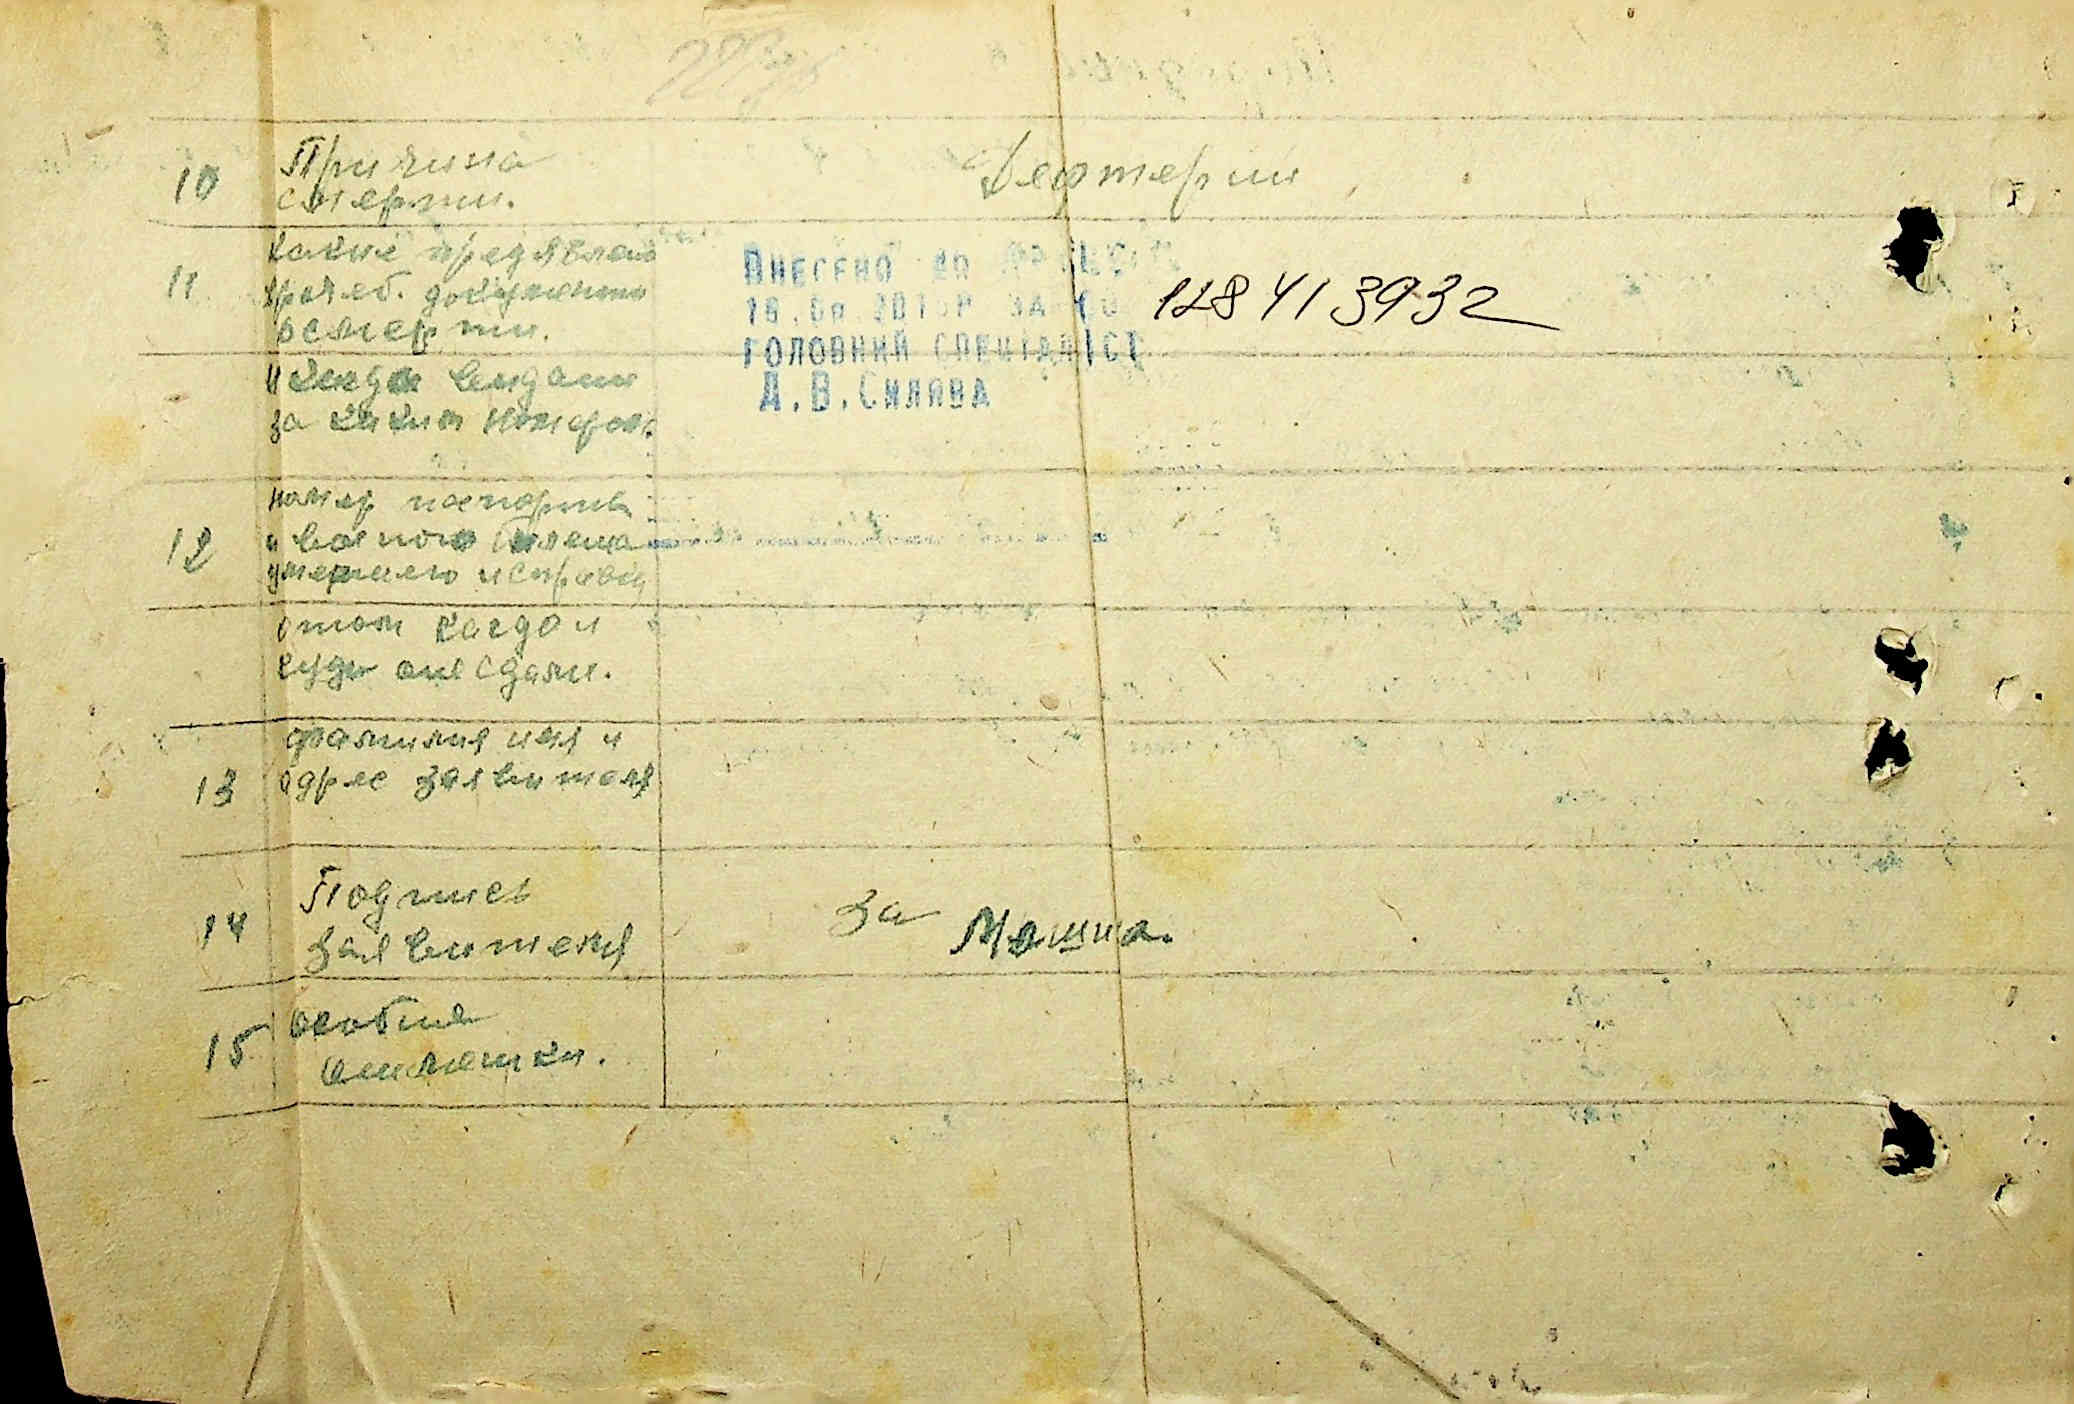 10 Причина
смерти.
Дефтерии
11 какие предявлены
врачеб. документы
осмерти.
Внесено до ДРАЦСГ
ГОЛОВНИЙ СПЕЦІАЛІСТ
Д.В.Силява
128413932
и когда выданы
за каким номером
12 номер паспорта
и военного билета
умершего исправка
отом когда и
куда они сданы.
13 фамилия имя и
адрес заявителя
14 Подпись
заявителя
за Мошна.
15 особые
отметки.